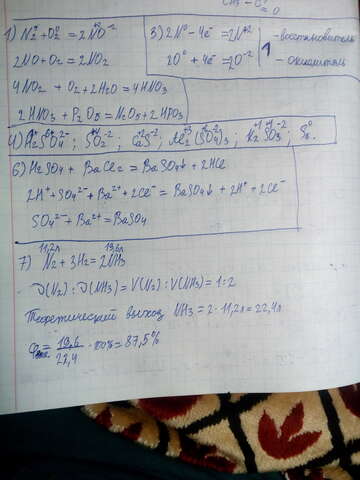 CH₃ - C
= O
1) N₂⁰ + O₂⁰ = 2N⁺²O⁻²
2NO + O₂ = 2NO₂
4NO₂ + O₂ + 2H₂O = 4HNO₃
2HNO₃ + P₂O₅ = N₂O₅ + 2HPO₃
3) 2N⁰ - 4e⁻ = 2N⁺² | 1 - восстановитель
2O⁰ + 4e⁻ = 2O⁻² | - окислитель
4) H₂SO₄; SO₂; CaS; Al₂(SO₄)₃; K₂SO₃; S₈⁰.
6) H₂SO₄ + BaCl₂ = BaSO₄↓ + 2HCl
2H⁺ + SO₄²⁻ + Ba²⁺ + 2Cl⁻ = BaSO₄↓ + 2H⁺ + 2Cl⁻
SO₄²⁻ + Ba²⁺ = BaSO₄
11,2л 19,6л
7) N₂ + 3H₂ = 2NH₃
ν(N₂) : ν(NH₃) = V(N₂) : V(NH₃) = 1:2
Теоретический выход NH₃ = 2 · 11,2л = 22,4л
φ = 19,6 / 22,4 · 100% = 87,5%